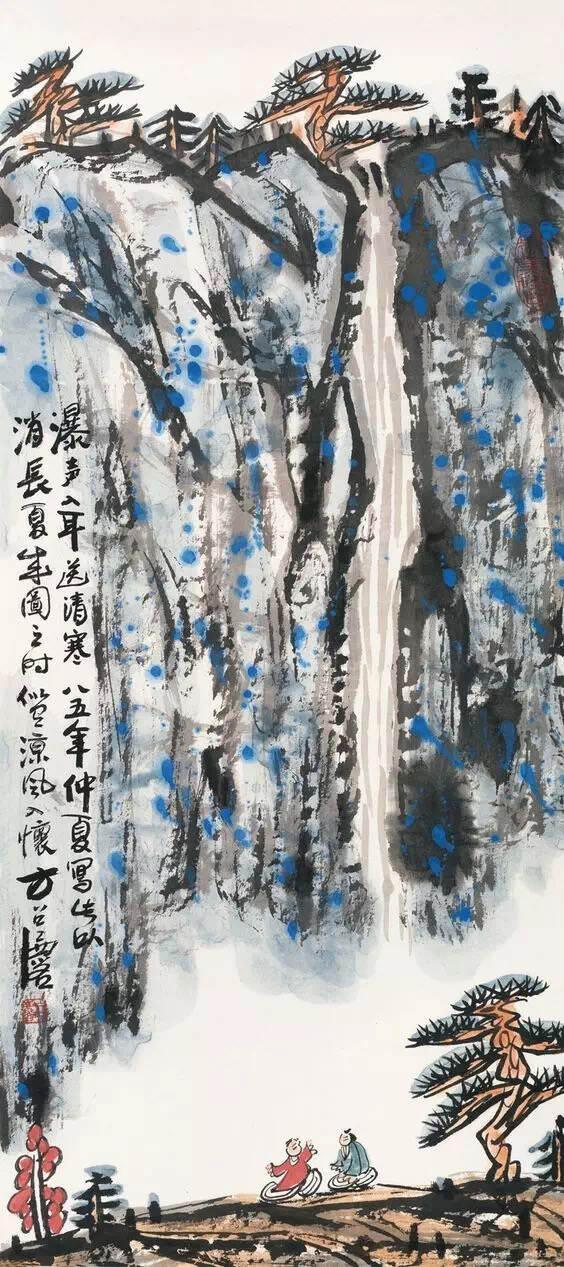 瀑声入耳送清寒 八五年仲夏寫此以
消長夏成圖之时涼風入懷 方召麐